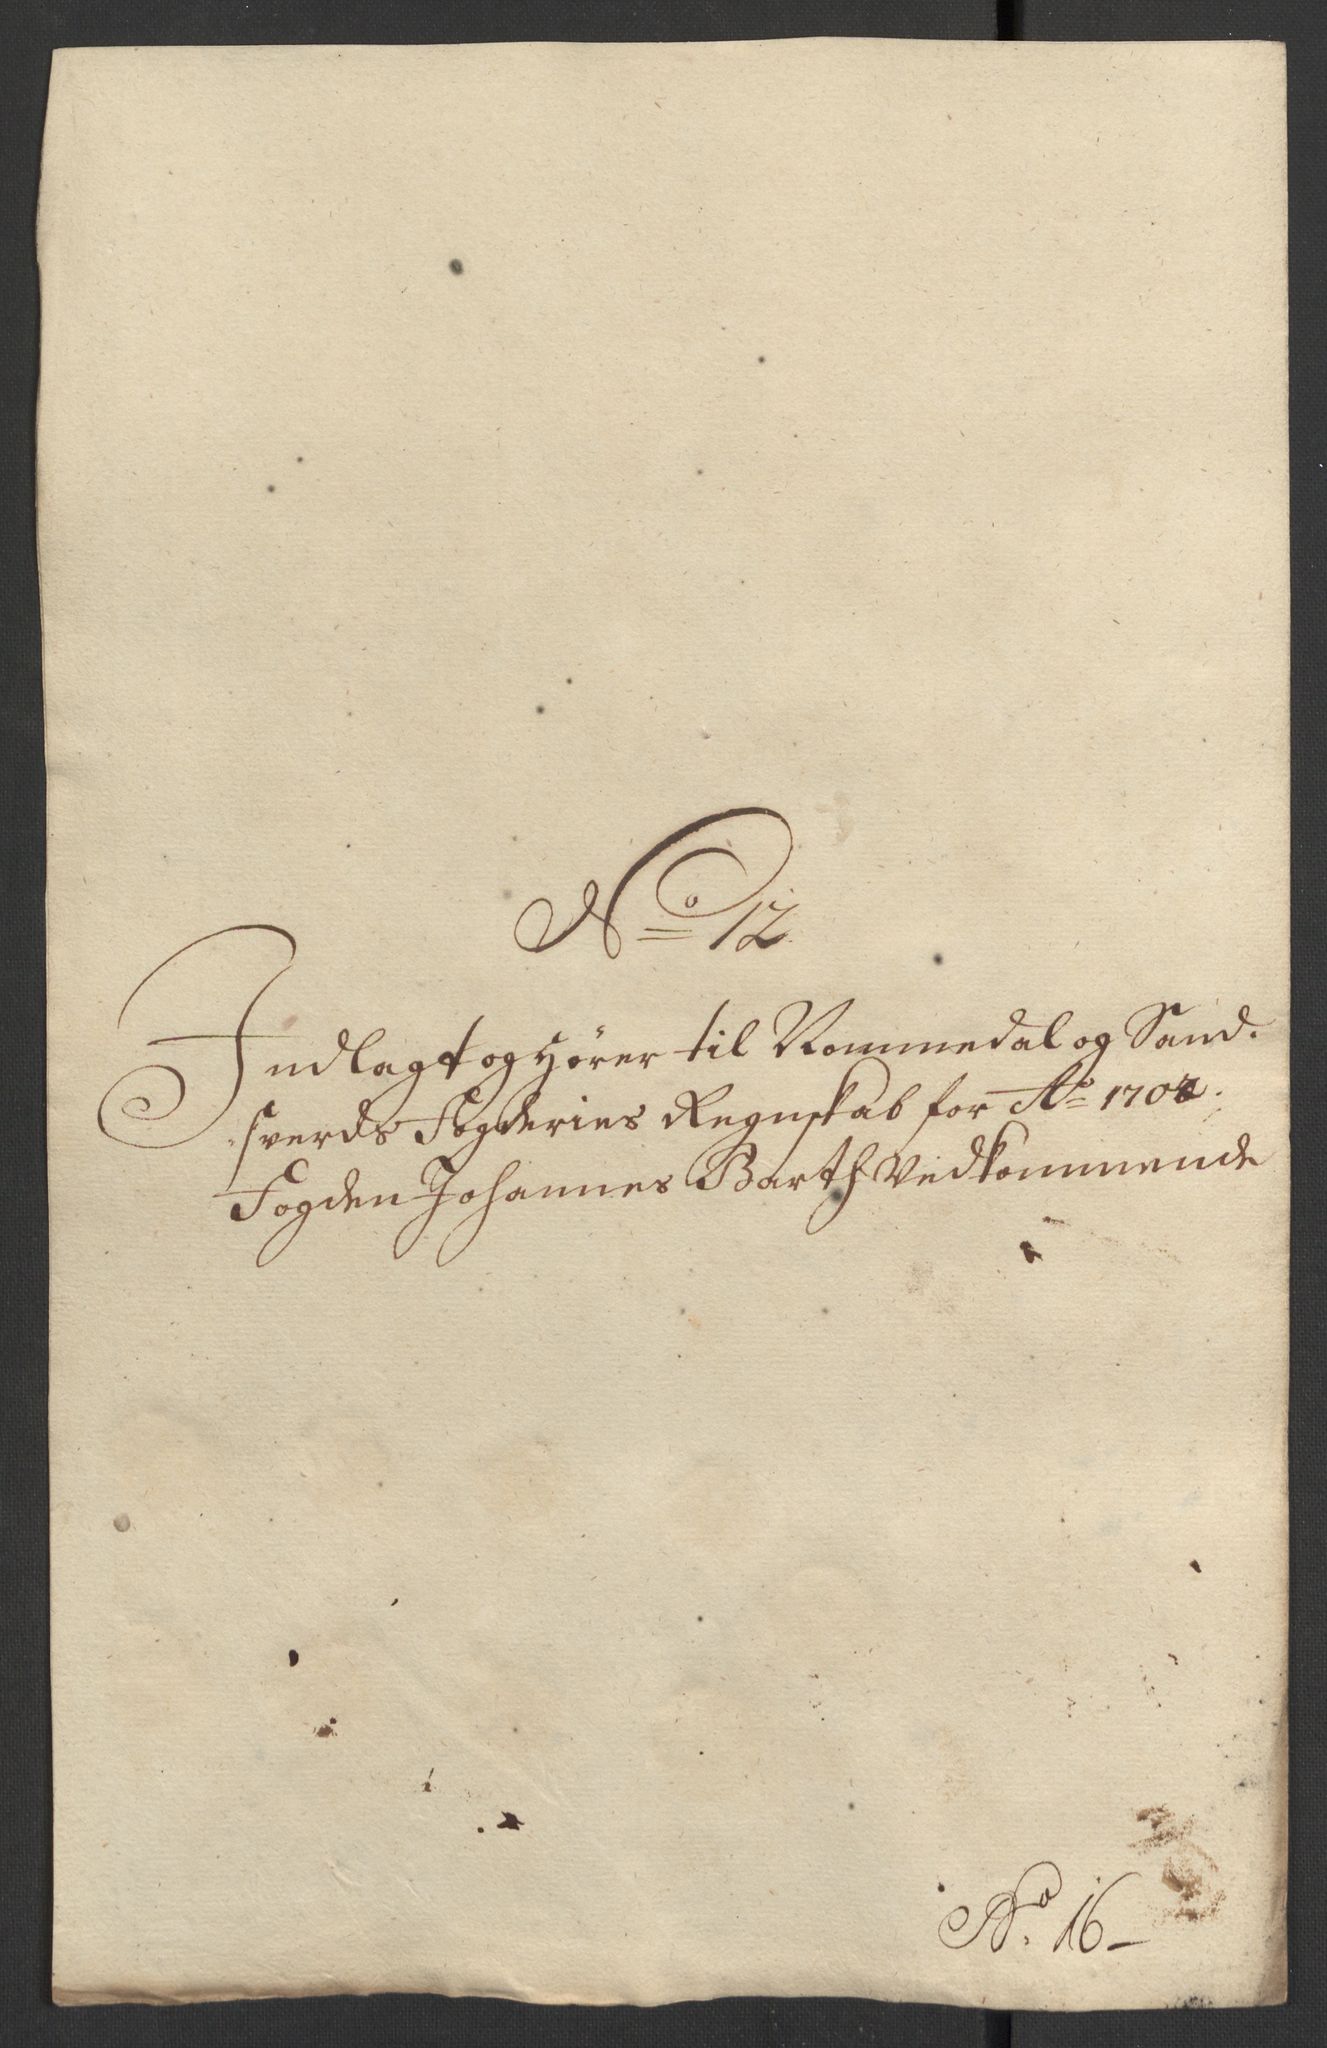 No 12
Indlagt og Hörer til Nommedal og Sand.
sverds Fogderies Regnskab for Ao
Fogden Johannes Barth Vedkommende
No. 16